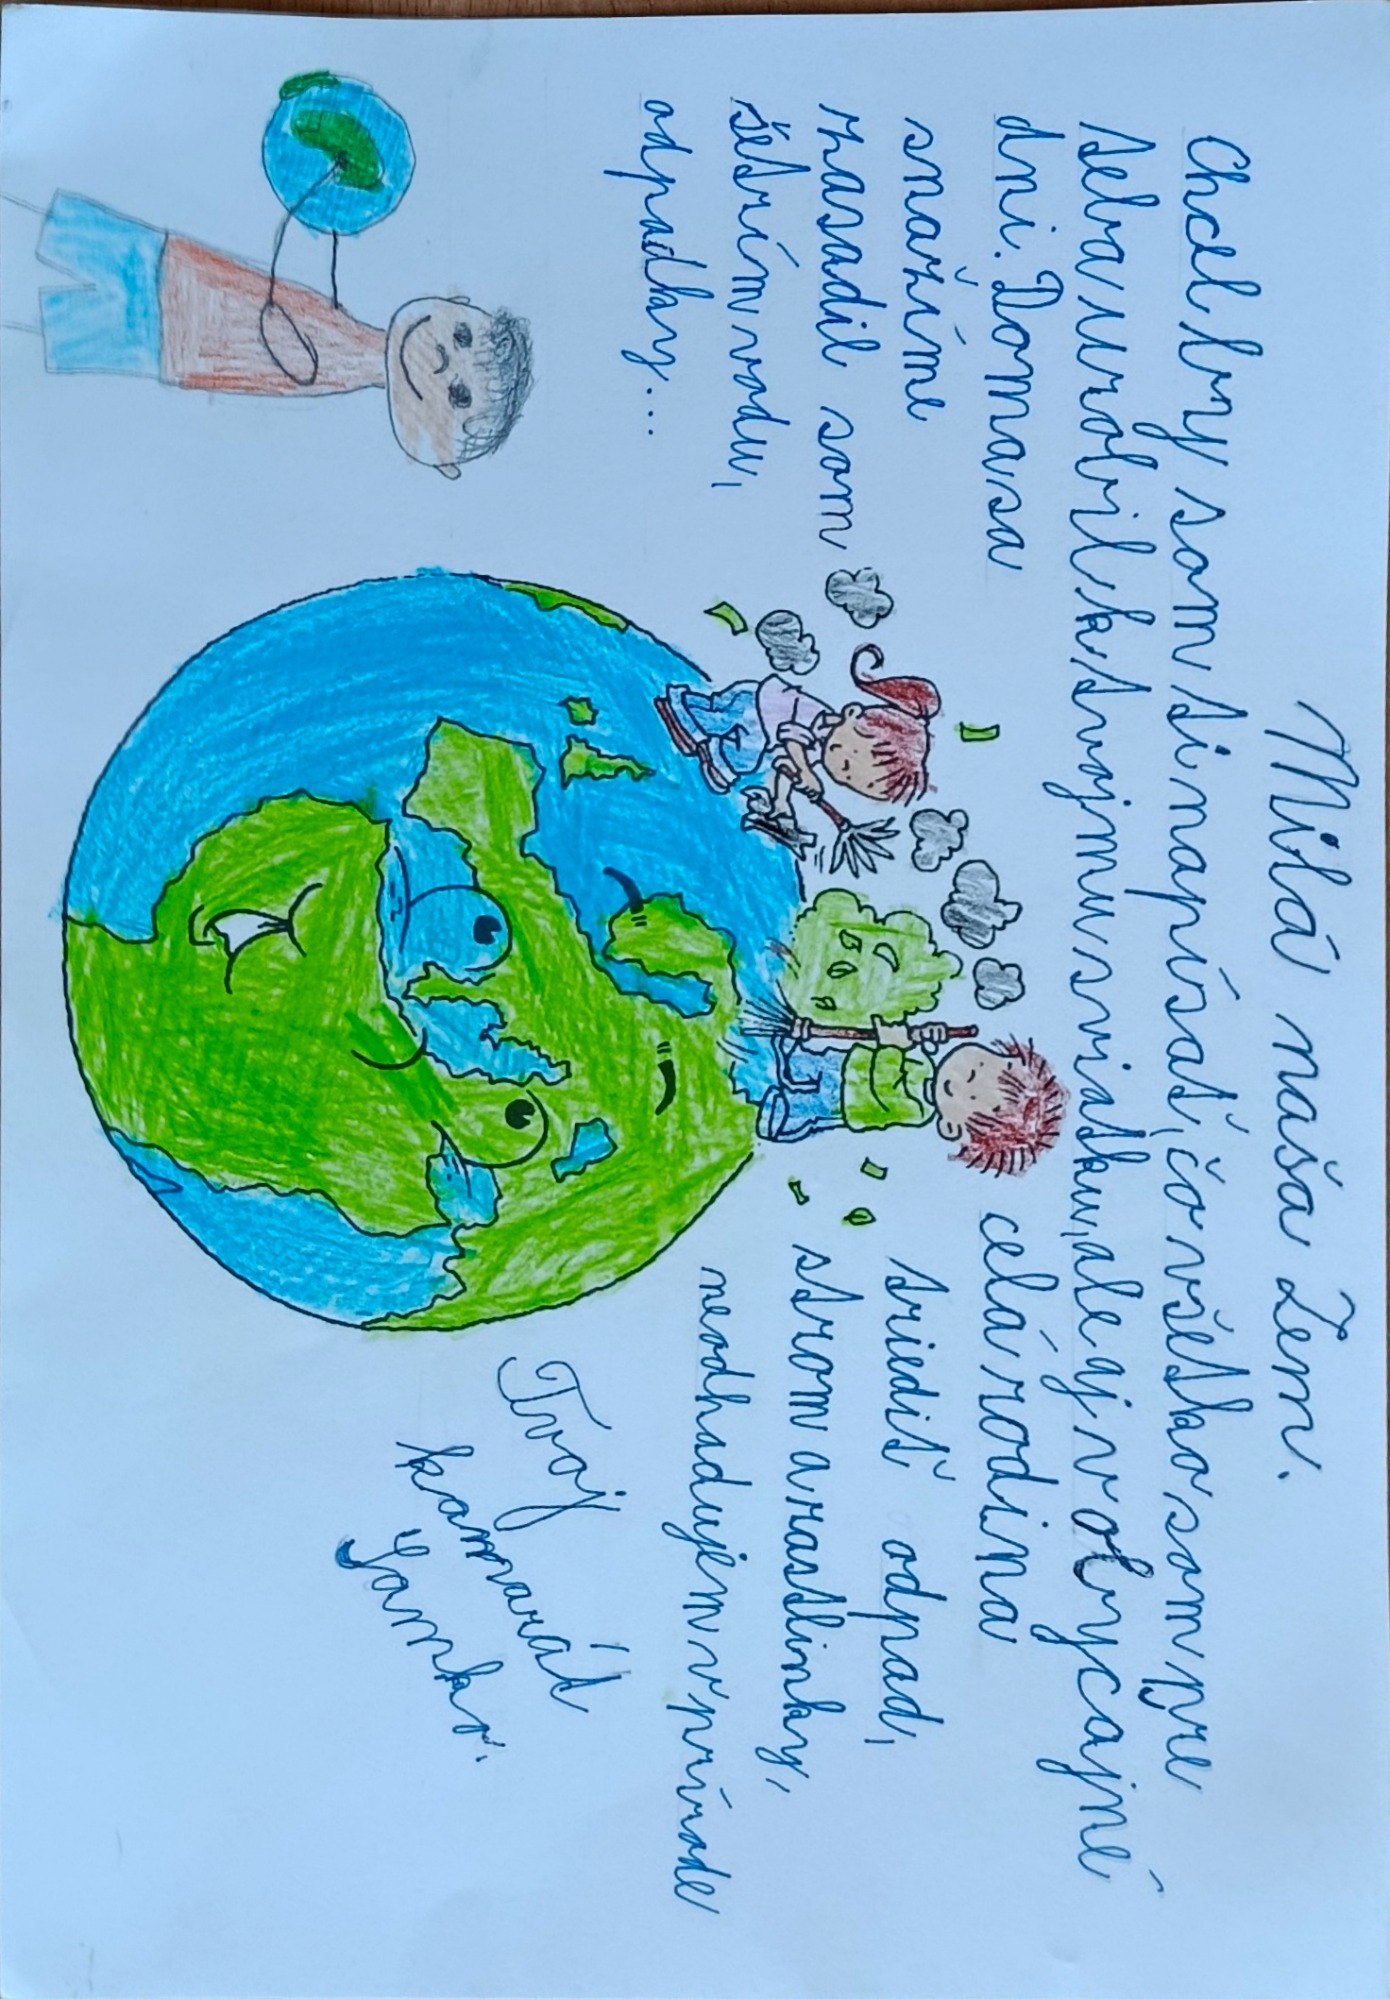 Milá naša Zem.
Chcel by som ti napísať, čo všetko som pre
teba urobil k tvojmu sviatku, ale aj v obycajné
dni. Doma sa celá rodina
snažíme triediť odpad,
zasadil som strom a rastlinky,
šetrím vodu, neodhadujem v prírode
odpadky...
Tvoj
kamarát
Samko.